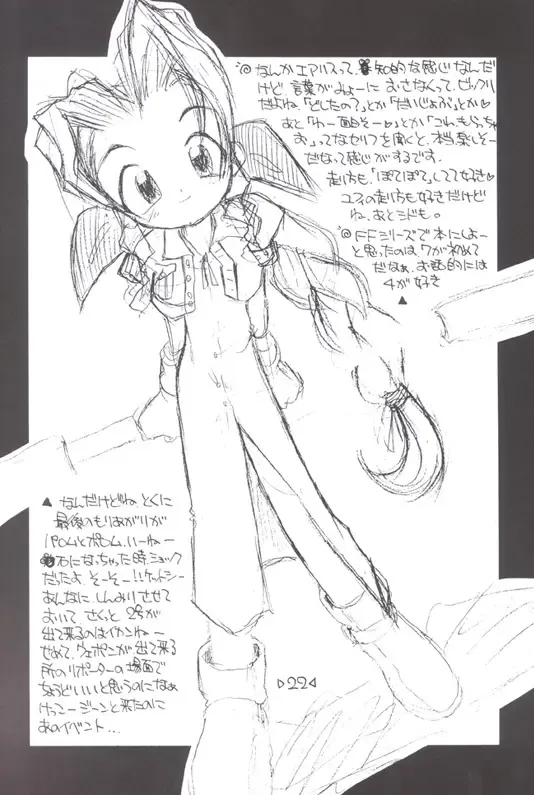 ◎なんかエアリスって、知的な感じなんだ
けど、言葉がみょーにおさなくって、ビックリ
だよね。「どしたの?」とか「だいじょぶ」とか♡
あと「わー面白そー♡」とか「コレ、もらっちゃ
お」ってなセリフを聞くと、本当楽しそー
だなって感じがするです。
走り方も、「ぽてぽて」してて好き♡
ユフィの走り方も好きだけど
ね、あとシドも。
◎FFシリーズで本にしよー
と思ったのは7が初めて
だなぁ。お話的には
4が好き
▲
▲ なんだけどね。とくに
最後のもりあがりが
パロムとポロム、いーねー
石になっちゃった時、ショック
だったよ。そーそー!!ケットシー
あんなに しんみりさせて
おいて さくっと 2号が
出て来るのはイカンねー
せめて、ウェポンが出て来る
所のリポーターの場面で
ちょうどいいと思うのになぁ
けっこージーンと来たのに
あのイベント…
▷22◁